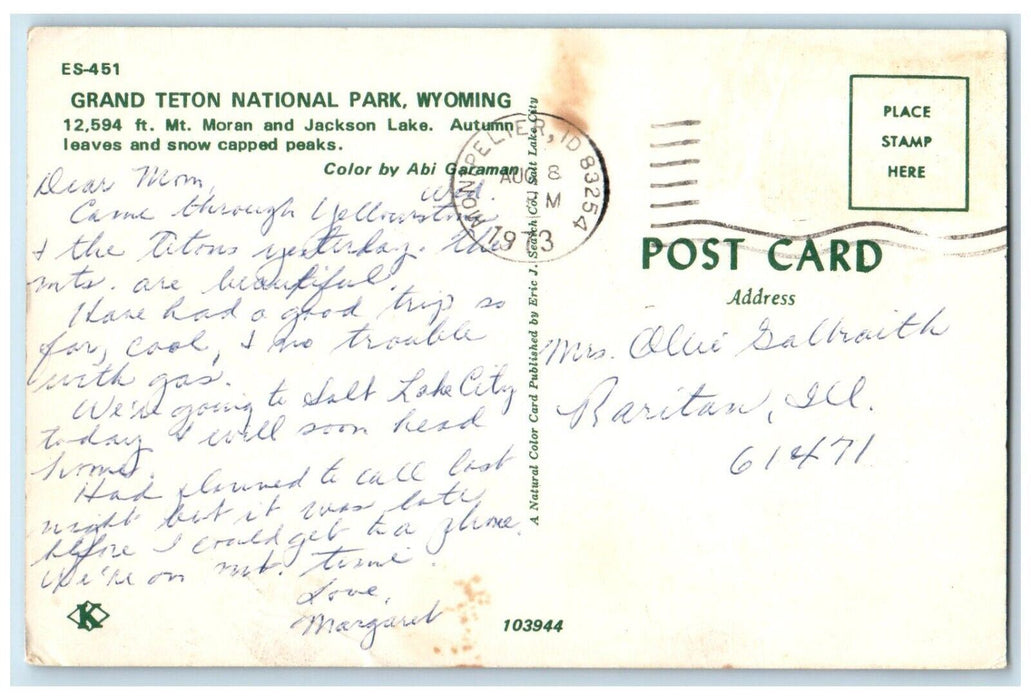 ES-451
GRAND TETON NATIONAL PARK, WYOMING
12,594 ft. Mt. Moran and Jackson Lake. Autumn
leaves and snow capped peaks.
Color by Abi Garaman
Wed.
Dear Mom,
Came through Yellowstone
& the Tetons yesterday. The
mts. are beautiful.
Have had a good trip so
far, cool, & no trouble
with gas.
We're going to Salt Lake City
today & will soon head
home.
Had planned to call last
night but it was late
before I could get to a phone.
We're on mt. time.
Love,
Margaret
K
103944
A Natural Color Card Published by Eric J. Seaich Co., Salt Lake City
MONTPELIER, ID 83254
AUG 8
M
1973
PLACE
STAMP
HERE
POST CARD
Address
Mrs. Ollie Galbraith
Raritan, Ill.
61471